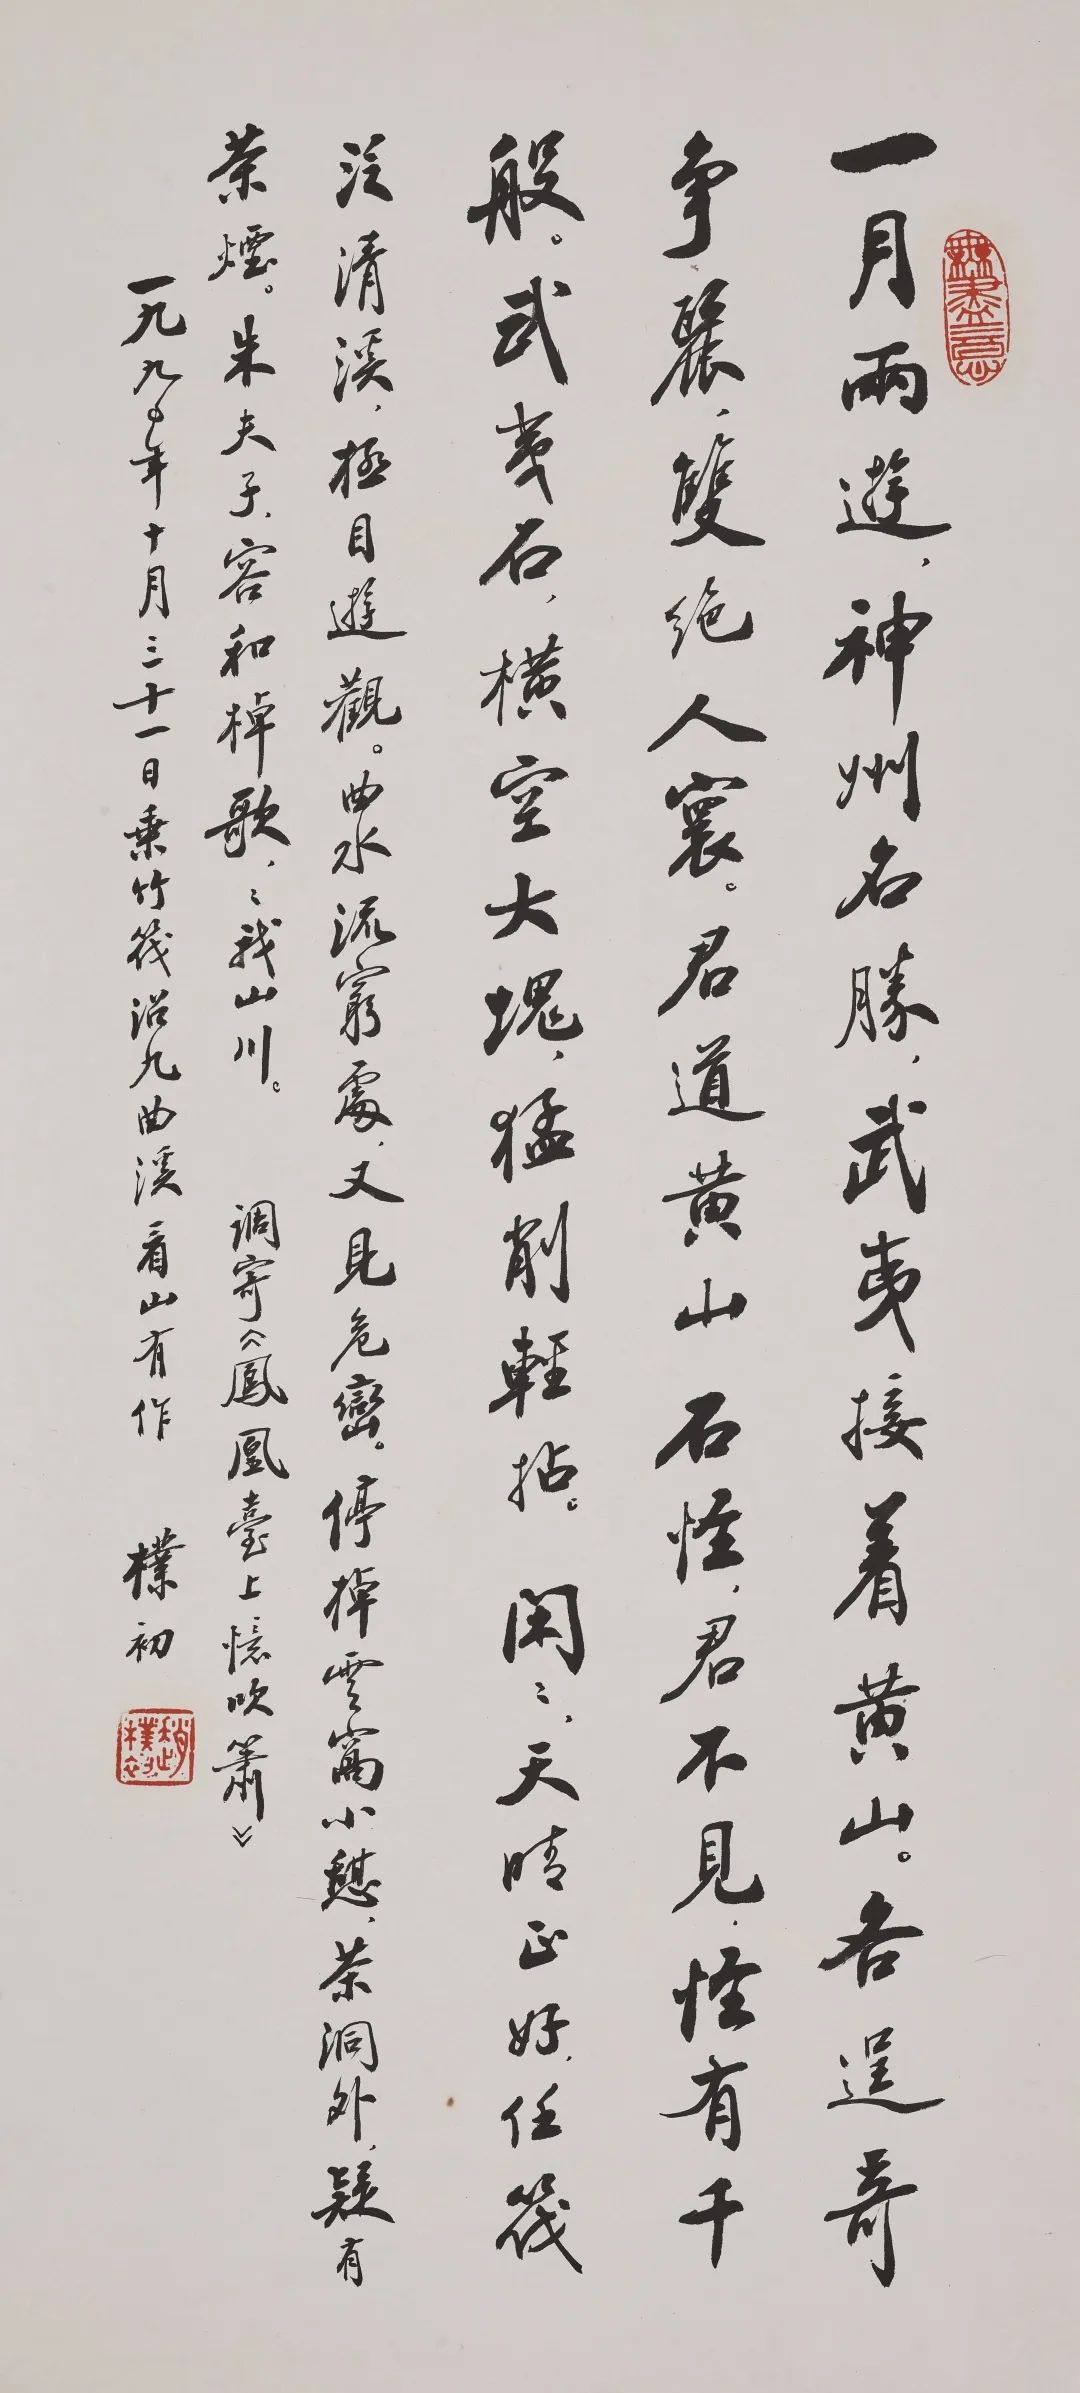 無盡意
一月兩遊，神州名勝，武夷接着黄山。各逞奇
争麗，雙絶人寰。君道黄山石怪，君不見，怪有千
般。武夷石，横空大塊，猛削輕拈。 閑〻，天晴正好，任筏
泛清溪，極目遊觀。曲水流窮處，又見危巒。停棹雲窩小憩，茶洞外，疑有
茶煙。朱夫子，容和棹歌，〻我山川。 调寄《鳳凰臺上憶吹簫》
一九九〇年十月三十一日乘竹筏沿九曲溪看山有作 樸初
趙樸初